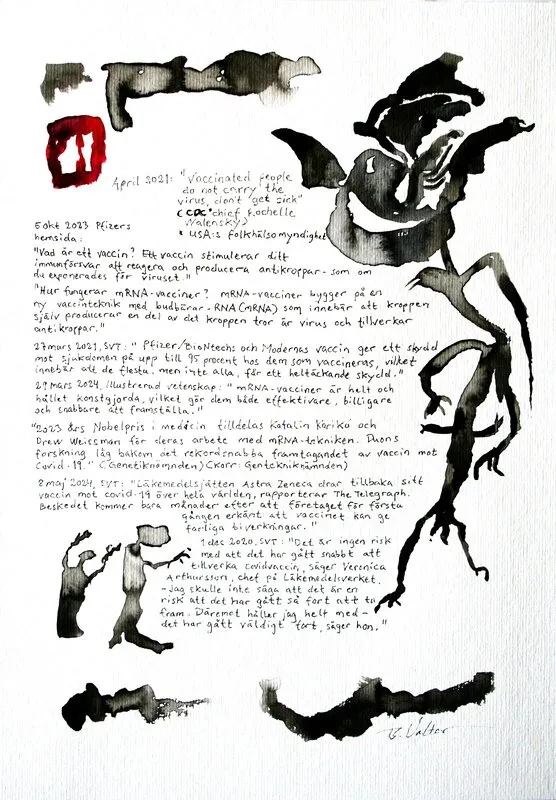 April 2021: "Vaccinated people
do not carry the
virus, don't get sick"
(CDC* chief Rochelle
Walensky)
* USA:s folkhälsomyndighet
5 okt 2023 Pfizers
hemsida:
"Vad är ett vaccin? Ett vaccin stimulerar ditt
immunförsvar att reagera och producera antikroppar - som om
du exponerades för viruset."
"Hur fungerar mRNA-vacciner? mRNA-vacciner bygger på en
ny vaccinteknik med budbärar-RNA (mRNA) som innebär att kroppen
själv producerar en del av det kroppen tror är virus och tillverkar
antikroppar."
27 mars 2021, SVT: "Pfizer/BioNtechs och Modernas vaccin ger ett skydd
mot sjukdomen på upp till 95 procent hos dem som vaccineras, vilket
innebär att de flesta, men inte alla, får ett heltäckande skydd."
29 mars 2024, illustrerad vetenskap: "mRNA-vacciner är helt och
hållet konstgjorda, vilket gör dem både effektivare, billigare
och snabbare att framställa."
"2023 års Nobelpris i medicin tilldelas Katalin Karikó och
Drew Weissman för deras arbete med mRNA-tekniken. Duons
forskning låg bakom det rekordsnabba framtagandet av vaccin mot
Covid-19." (Genetiknämnden) (Korr: Gentekniknämnden)
8 maj 2024, SVT: "Läkemedelsjätten Astra Zeneca drar tillbaka sitt
vaccin mot covid-19 över hela världen, rapporterar The Telegraph.
Beskedet kommer bara månader efter att företaget för första
gången erkänt att vaccinet kan ge
farliga biverkningar."
1 dec 2020, SVT: "Det är ingen risk
med att det har gått snabbt att
tillverka covidvaccin, säger Veronica
Arthursson, chef på Läkemedelsverket.
- Jag skulle inte säga att det är en
risk att det har gått så fort att ta
fram. Däremot håller jag helt med -
det har gått väldigt fort, säger hon."
B. Valter